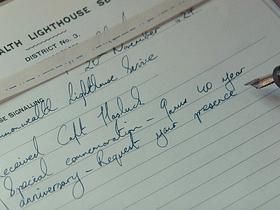 ALTH LIGHTHOUSE SE
DISTRICT No. 3.
November
SE SIGNALLING
monwealth Lighthouse Service
eceived Capt Hasluck
Special commemoration - Janus 40 year
anniversary - Request your presence